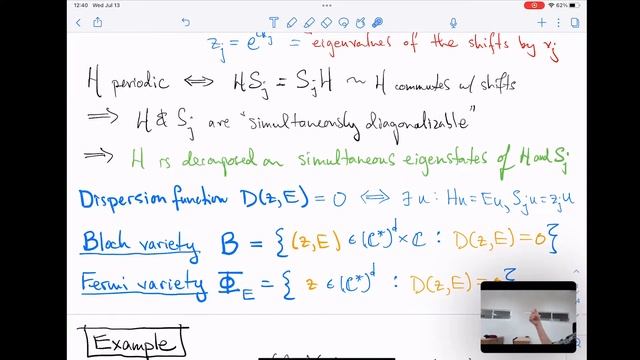 12:40 Wed Jul 13
62%
z_j = e^{ik_j} = "eigenvalues of the shifts by v_j
H periodic ⟺ HS_j = S_jH ~ H commutes w/ shifts
⟹ H & S_j are "simultaneously diagonalizable"
⟹ H is decomposed on simultaneous eigenstates of H and S_j
Dispersion function D(z,E) = 0 ⟺ ∃u : Hu = Eu, S_ju = z_ju
Bloch variety B = {(z,E) ∈ (ℂ*)^d × ℂ : D(z,E) = 0}
Fermi variety Φ_E = { z ∈ (ℂ*)^d : D(z,E) = 0}
Example